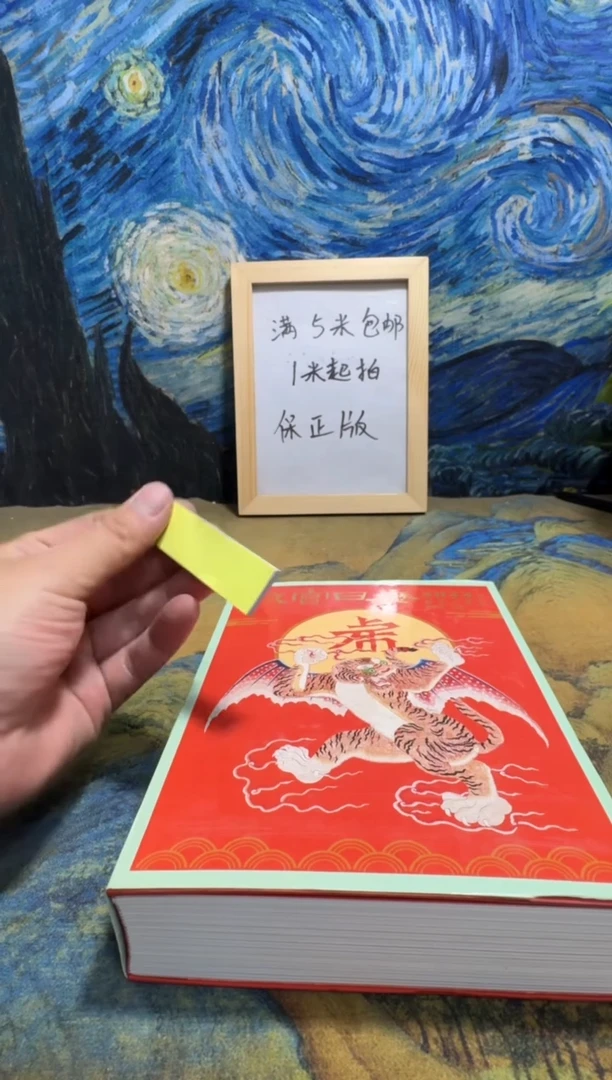 满5米包邮
1米起拍
保正版